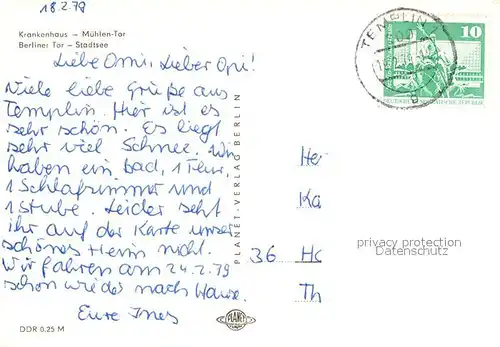 18.2.79
Krankenhaus – Mühlen-Tor
Berliner Tor – Stadtsee
Liebe Omi, lieber Opi!
Viele liebe Grüße aus
Templin. Hier ist es
sehr schön. Es liegt
sehr viel Schnee. Wir
haben ein Bad, 1 Flur,
1 Schlafzimmer und
1 Stube. Leider seht
ihr auf der Karte unser
schönes Heim nicht.
Wir fahren am 24.2.79
schon wieder nach Hause.
Eure Ines
DDR 0.25 M
PLANET-VERLAG BERLIN
PLANET
TEMPLIN
10
DEUTSCHE DEMOKRATISCHE REPUBLIK
Her
Ka
36 Hc
Th
privacy protection
Datenschutz